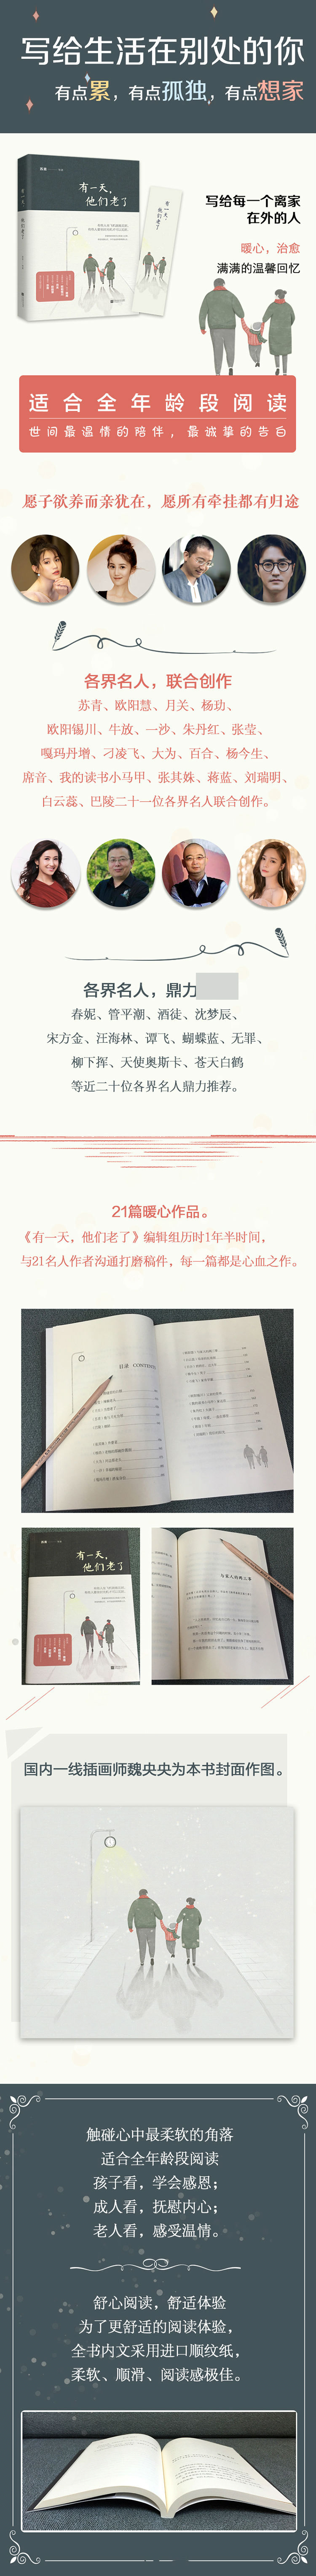 写给生活在别处的你
有点累，有点孤独，有点想家
有一天，
他们老了
有一天，
他们老了
写给每一个离家
在外的人
暖心，治愈
满满的温馨回忆
适合全年龄段阅读
世间最温情的陪伴，最诚挚的告白
愿子欲养而亲犹在，愿所有牵挂都有归途
各界名人，联合创作
苏青、欧阳慧、月关、杨功、
欧阳锡川、牛放、一沙、朱丹红、张莹、
嘎玛丹增、刁凌飞、大为、百合、杨今生、
席音、我的读书小马甲、张其姝、蒋蓝、刘瑞明、
白云蕊、巴陵二十一位各界名人联合创作。
各界名人，鼎力
春妮、管平潮、酒徒、沈梦辰、
宋方金、汪海林、谭飞、蝴蝶蓝、无罪、
柳下挥、天使奥斯卡、苍天白鹤
等近二十位各界名人鼎力推荐。
21篇暖心作品。
《有一天，他们老了》编辑组历时1年半时间，
与21名人作者沟通打磨稿件，每一篇都是心血之作。
目录 CONTENTS
有一天，
他们老了
与家人的两三事
国内一线插画师魏央央为本书封面作图。
触碰心中最柔软的角落
适合全年龄段阅读
孩子看，学会感恩；
成人看，抚慰内心；
老人看，感受温情。
舒心阅读，舒适体验
为了更舒适的阅读体验，
全书内文采用进口顺纹纸，
柔软、顺滑、阅读感极佳。